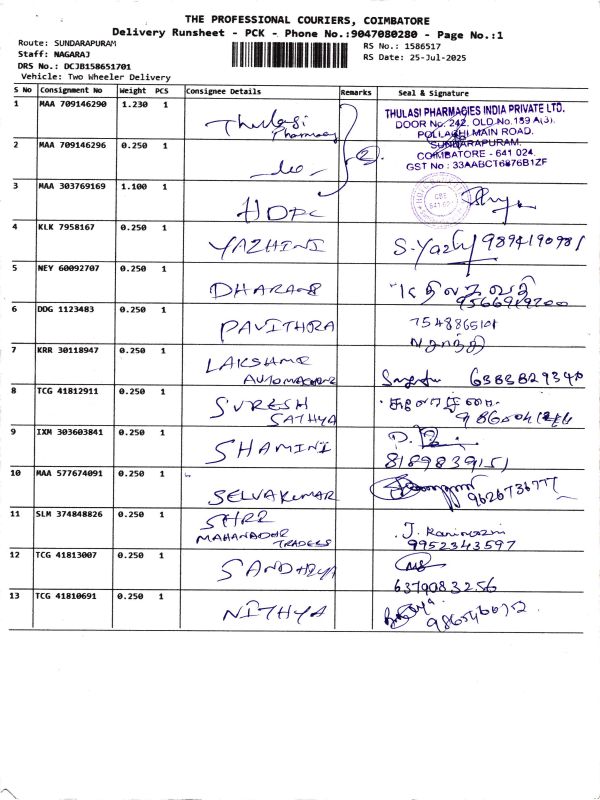 THE PROFESSIONAL COURIERS, COIMBATORE
Delivery Runsheet - PCK - Phone No.:9047080280 - Page No.:1
Route: SUNDARAPURAM
RS No.: 1586517
Staff: NAGARAJ
RS Date: 25-Jul-2025
DRS No.: DCJB158651701
Vehicle: Two Wheeler Delivery
S No Consignment No Weight PCS Consignee Details Remarks Seal & Signature
1 MAA 709146290 1.230 1 Thulasi Pharmacy
THULASI PHARMACIES INDIA PRIVATE LTD.
DOOR No. 242, OLD No.159 A(3),
POLLACHI MAIN ROAD,
SUNDARAPURAM,
COIMBATORE - 641 024.
GST No : 33AABCT6876B1ZF
2 MAA 709146296 0.250 1
3 MAA 303769169 1.100 1 HDFC
4 KLK 7958167 0.250 1 YAZHINI S. Yazhy 9894190981
5 NEY 60092707 0.250 1 DHARANI
6 DDG 1123483 0.250 1 PAVITHRA 7548865101
7 KRR 30118947 0.250 1 LAKSHMI
8 TCG 41812911 0.250 1 SURESH SATHYA
9 IXM 303603841 0.250 1 SHAMINI 8189839151
10 MAA 577674091 0.250 1 SELVAKUMAR
11 SLM 374848826 0.250 1 SHRI
TRADERS 9952343597
12 TCG 41813007 0.250 1 SANDHIYA 6379083256
13 TCG 41810691 0.250 1 NITHYA